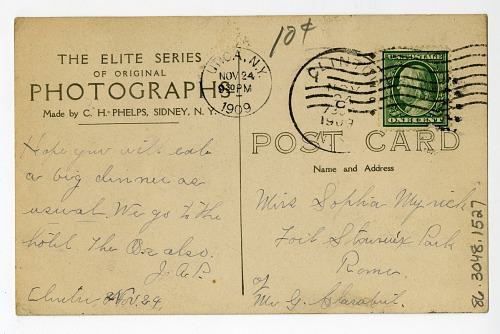 10¢
THE ELITE SERIES
OF ORIGINAL
PHOTOGRAPHS
Made by C. H. PHELPS, SIDNEY, N. Y.
UTICA, N.Y.
NOV 24
930 PM
1909
CLINT
NOV
1909
U.S. POSTAGE
ONE CENT
POST CARD
Name and Address
Hope you will eat
a big dinner as
usual. We go to the
hotel. The O.s also.
J. A. P.
Clinton, Nov. 24,
Miss Sophia Myrick
Fort Park
Rome
of
Mr G. Clarabut.
86.3048.1527